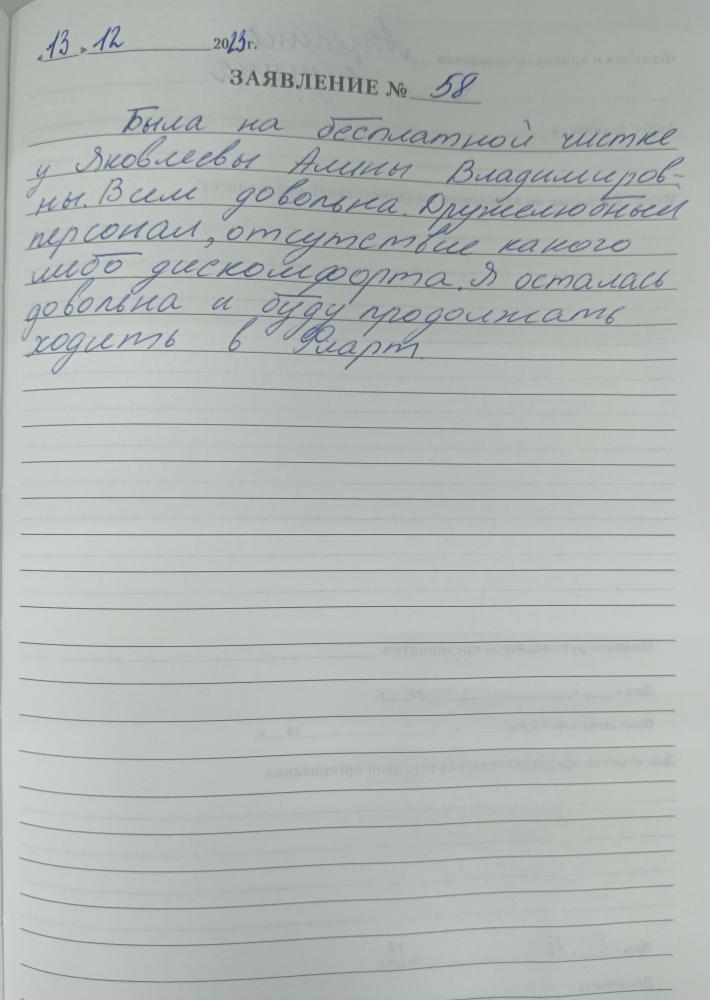 «13» 12 2023г.
ЗАЯВЛЕНИЕ № 58
Была на бесплатной чистке
у Яковлевы Алины Владимиров-
ны. Всем довольна. Дружелюбный
персонал, отсутствие какого
либо дискомфорта. Я осталась
довольна и буду продолжать
ходить в Фларт.